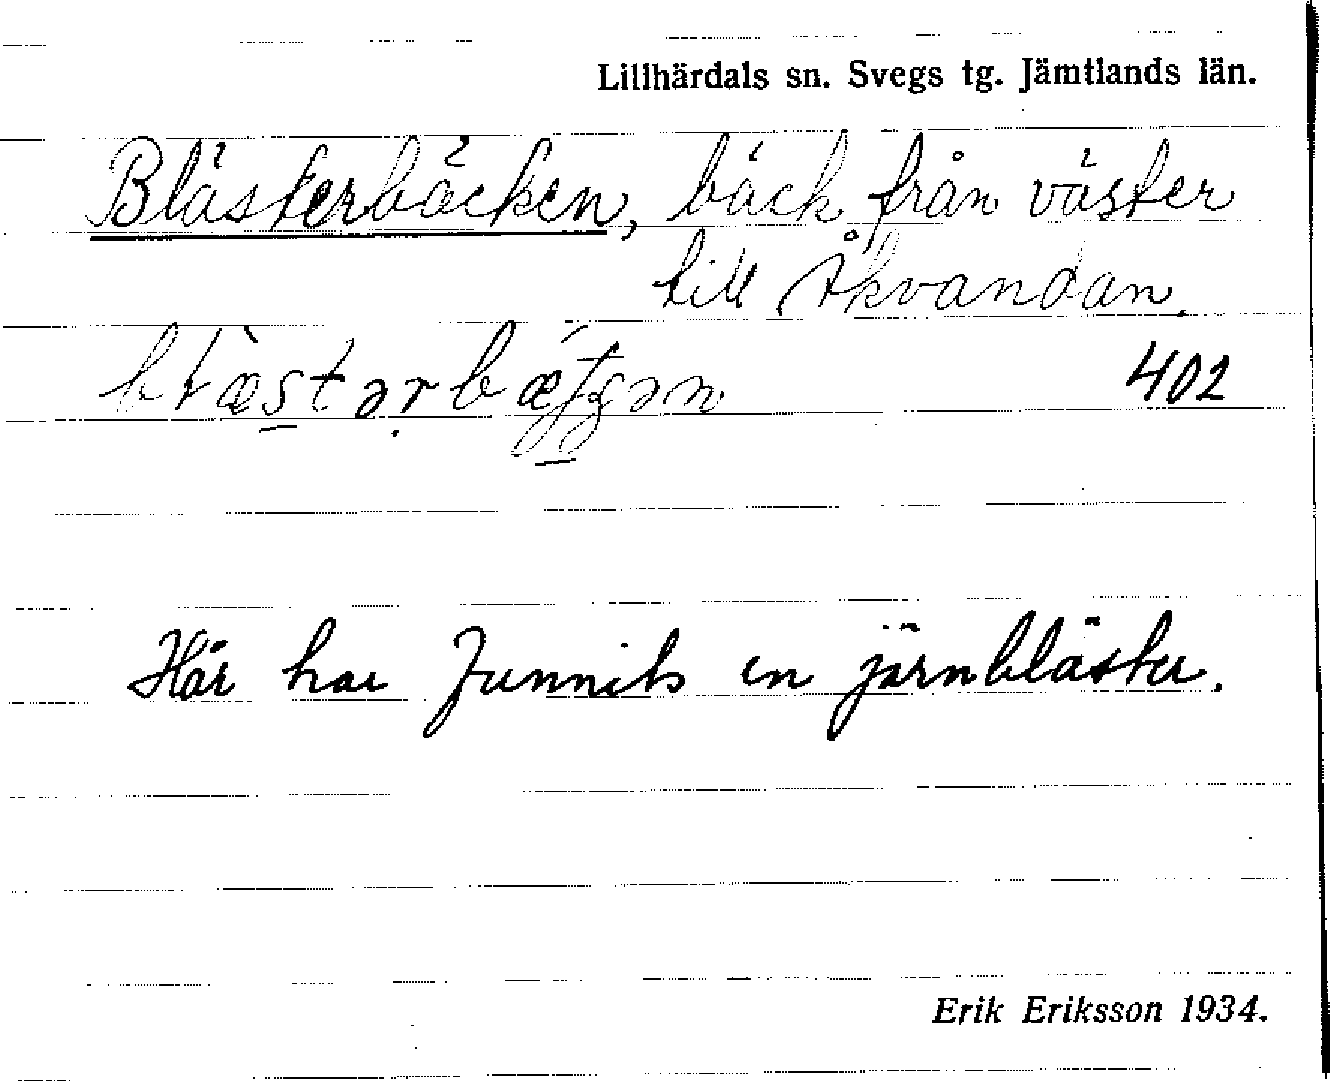 Lillhärdals sn. Svegs tg. Jämtlands län.
Blästerbäcken, bäck från väster
till Åkvandan.
402
Här har funnits en järnbläster.
Erik Eriksson 1934.